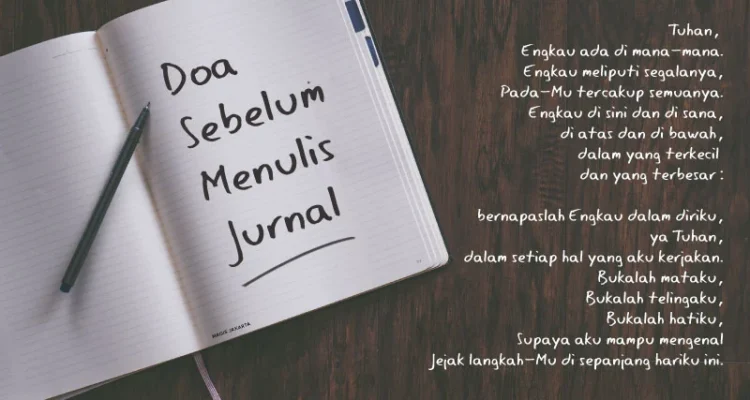 Doa
Sebelum
Menulis
Jurnal
MAGIS JAKARTA
Tuhan,
Engkau ada di mana-mana.
Engkau meliputi segalanya,
Pada-Mu tercakup semuanya.
Engkau di sini dan di sana,
di atas dan di bawah,
dalam yang terkecil
dan yang terbesar:
bernapaslah Engkau dalam diriku,
ya Tuhan,
dalam setiap hal yang aku kerjakan.
Bukalah mataku,
Bukalah telingaku,
Bukalah hatiku,
Supaya aku mampu mengenal
Jejak langkah-Mu di sepanjang hariku ini.